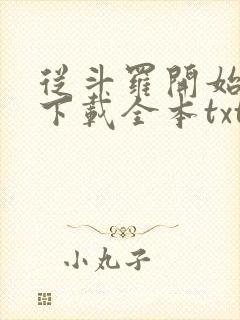 從斗羅開始
下載全本txt
小丸子